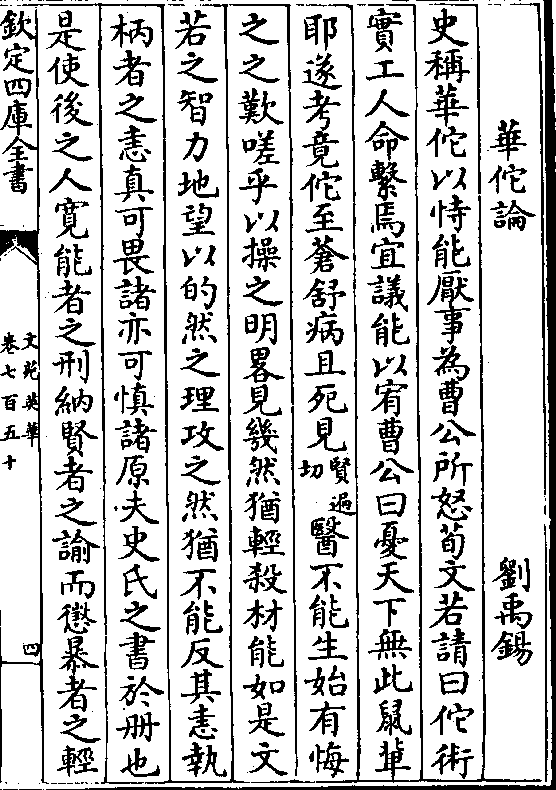 華佗論 劉禹錫
史稱華佗以恃能厭事為曹公所怒荀文若請曰佗術
實工人命繫焉宜議能以宥曹公曰憂天下無此鼠輩
耶遂考竟佗至蒼舒病且死見賢遍切醫不能生始有悔
之之歎嗟乎以操之明畧見幾然猶輕殺材能如是文
若之智力地望以的然之理攻之然猶不能反其恚執
柄者之恚真可畏諸亦可慎諸原夫史氏之書於册也
是使後之人寬能者之刑納賢者之諭而懲暴者之輕
欽定四庫全書
文苑英華
卷七百五十
四